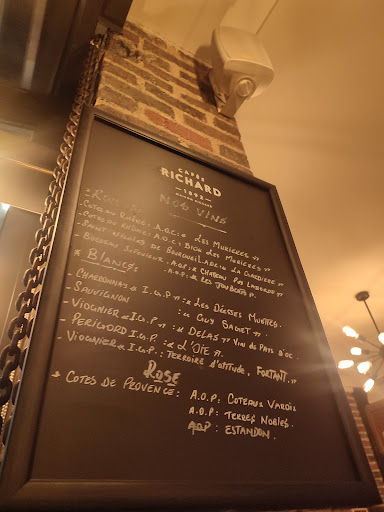 CAFÉS
RICHARD
1892
NOS VINS
- ROUGES
- CÔTE DU RHÔNE: A.O.C: « LES MURIERES »
- CÔTES DU RHÔNE: A.O.C: BIO « LES MURIERES »
- SAINT NICOLAS DE BOURGUEIL A.O.C « LA GARDIERE »
- BORDEAU SUPÉRIEUR: A.O.P: CHATEAU
A.O.P: « LES »
* BLANCS
- CHARDONNAY « I.G.P »: « LES DÉESSES MUETTES.
- SAUVIGNON : « GUY SAGET ».
- VIOGNIER « I.G.P »: « DELAS » VIN DE PAYS D'OC.
- PÉRIGORD I.G.P: « L'OIE ».
- VIOGNIER « I.G.P: TERROIRE D'ATTITUDE, FORTANT. »
ROSÉ
- COTES DE PROVENCE: A.O.P: COTEAUX VAROIS
A.O.P: TERRES NOBLES.
AOP: ESTANDON.